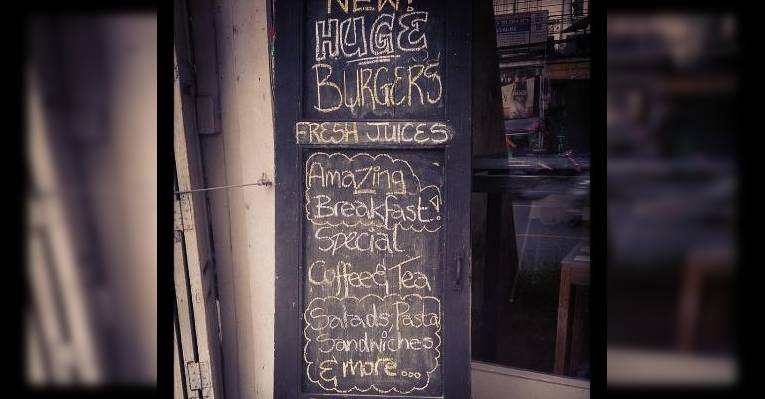 NEW!
HUGE
BURGERS
FRESH JUICES
Amazing
Breakfast!
Special
Coffee & Tea
Salads, Pasta
Sandwiches
& more...